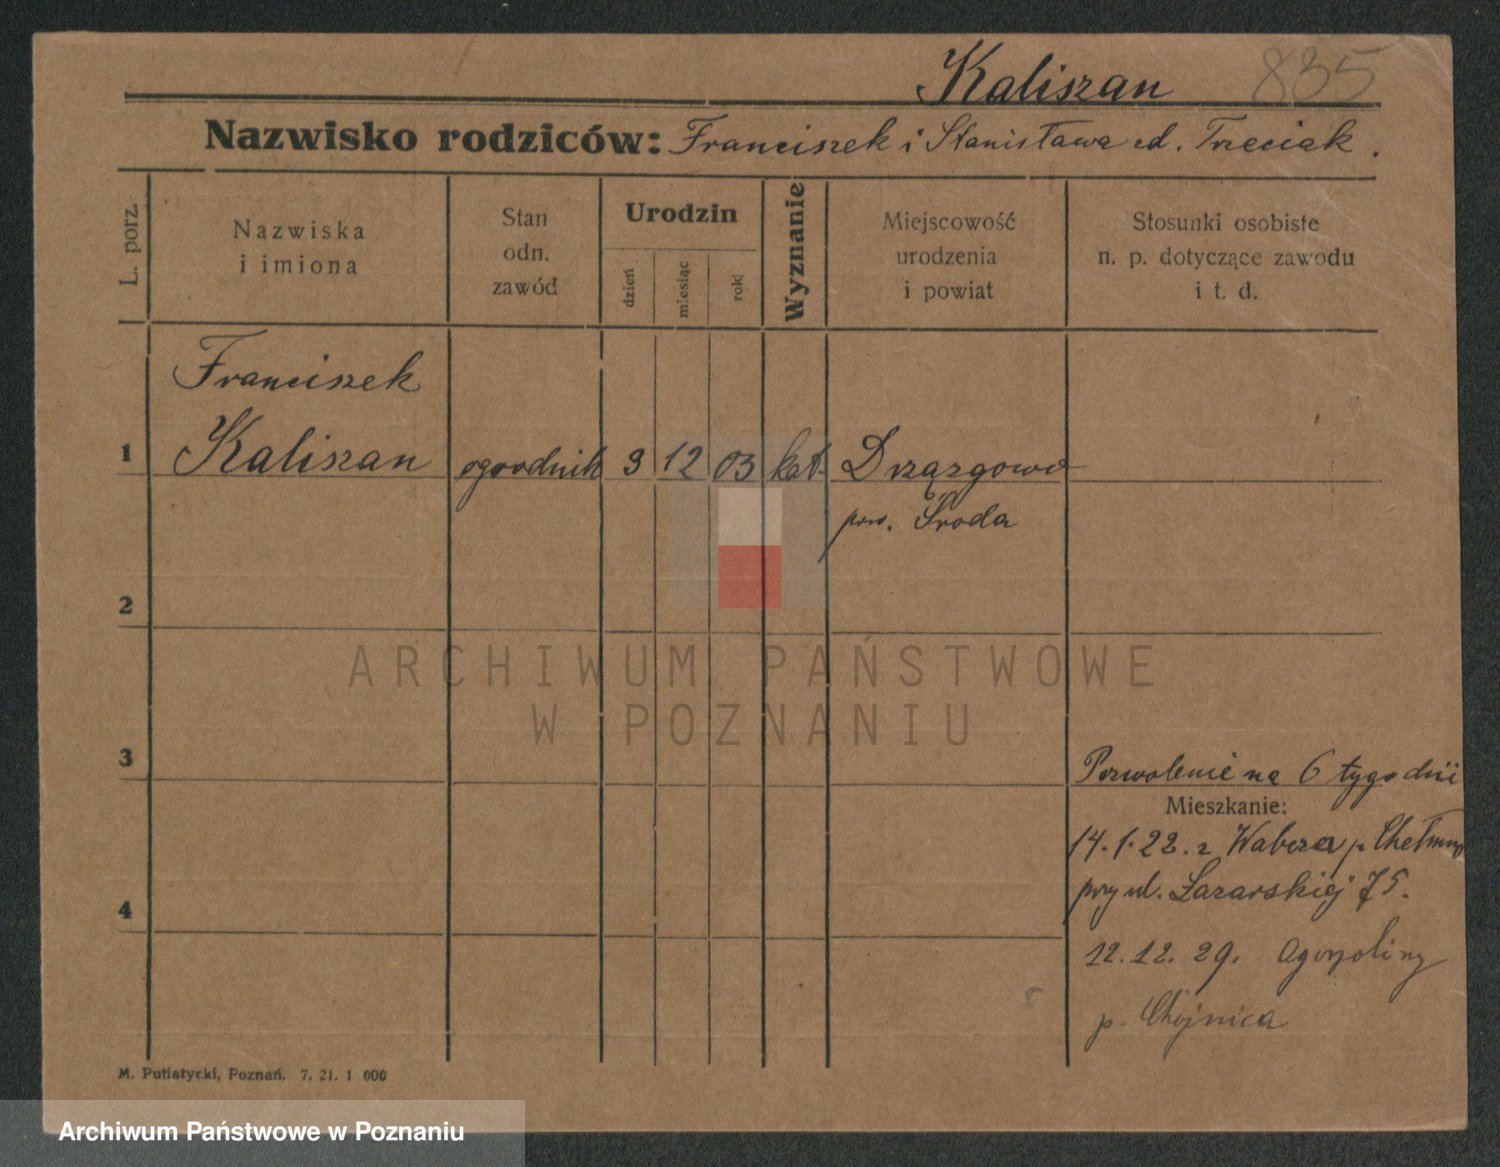 Kaliszan 835
Nazwisko rodziców: Franciszek i Stanisława zd. Trzeciak.
L. porz.
Nazwiska
i imiona
Stan
odn.
zawód
Urodzin
dzień
miesiąc
rok
Wyznanie
Miejscowość
urodzenia
i powiat
Stosunki osobiste
n. p. dotyczące zawodu
i t. d.
Franciszek
1 Kaliszan ogrodnik 9 12 03 kat. Drzązgowo
pow. Środa
2
ARCHIWUM PAŃSTWOWE
W POZNANIU
3 Pozwolenie na 6 tygodnii
Mieszkanie:
14.1.22. z p. Chełmno
przy ul. Łazarskiej 75.
4
12.12.29.
p. Chojnica
M. Putiatycki, Poznań. 7. 21. 1 000
Archiwum Państwowe w Poznaniu